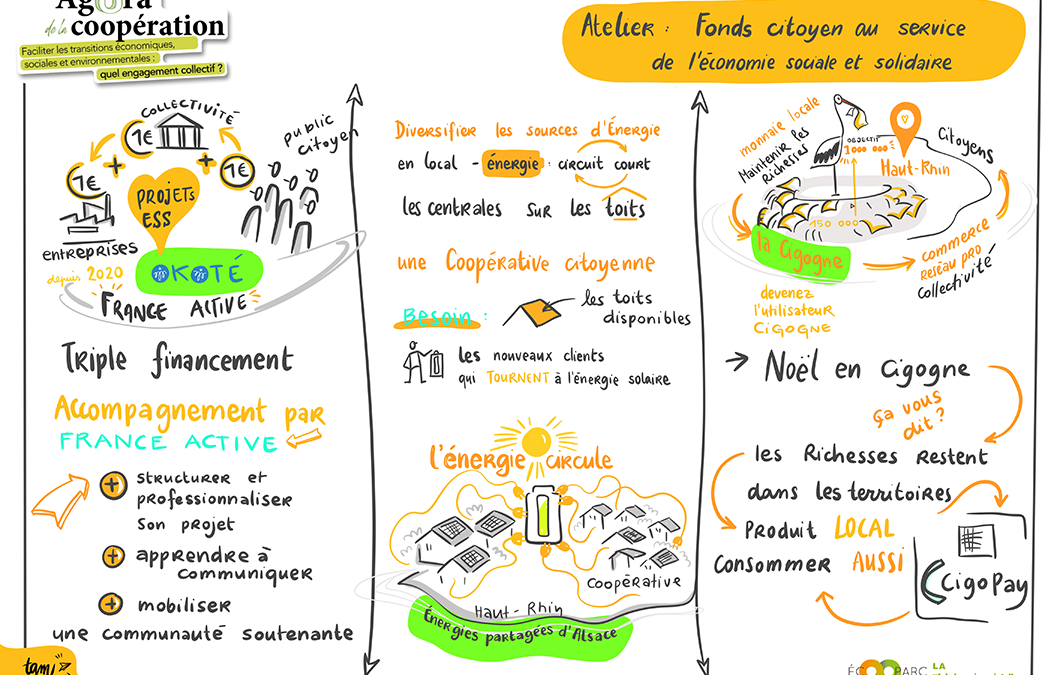 Agora
de la coopération
Faciliter les transitions économiques,
sociales et environnementales :
quel engagement collectif ?
Atelier : Fonds citoyen au service
de l'économie sociale et solidaire
COLLECTIVITÉ
public
citoyen
1€
+
1€
+
1€
PROJETS
ESS
entreprises
depuis 2020
OKOTÉ
FRANCE ACTIVE
Triple financement
Accompagnement par
FRANCE ACTIVE
+ structurer et
professionnaliser
son projet
+ apprendre à
communiquer
+ mobiliser
une communauté soutenante
tami
Diversifier les sources d'Énergie
en local - énergie : circuit court
les centrales sur les toits
une Coopérative citoyenne
Besoin :
les toits
disponibles
les nouveaux clients
qui TOURNENT à l'énergie solaire
l'énergie circule
Coopérative
Haut-Rhin
Énergies partagées d'Alsace
monnaie locale
Maintenir les
Richesses
OBJECTIF
1 000 000
150 000
Haut-Rhin
Citoyens
la Cigogne
commerce
Réseau pro
Collectivité
devenez
l'utilisateur
CIGOGNE
→ Noël en Cigogne
ça vous
dit ?
les Richesses restent
dans les territoires
Produit LOCAL
Consommer AUSSI
CigoPay
ÉCOPARC LA